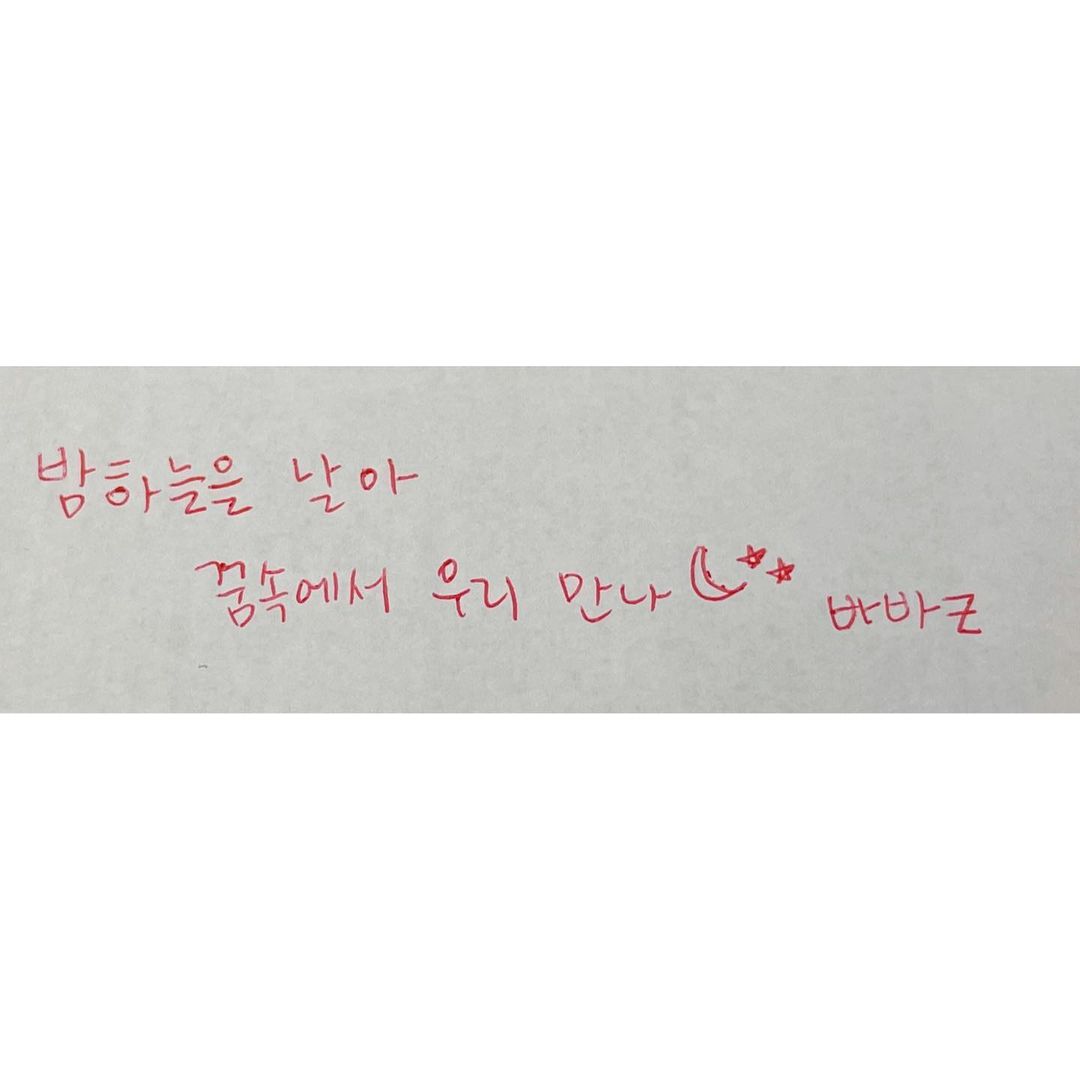 밤하늘을 날아
꿈속에서 우리 만나
바바즈